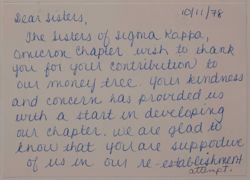 10/11/78
Dear Sisters,
The Sisters of Sigma Kappa,
Omicron Chapter wish to thank
you for your contribution to
our money tree. Your kindness
and concern has provided us
with a start in developing
our chapter. We are glad to
know that you are supportive
of us in our re-establishment
attempt.